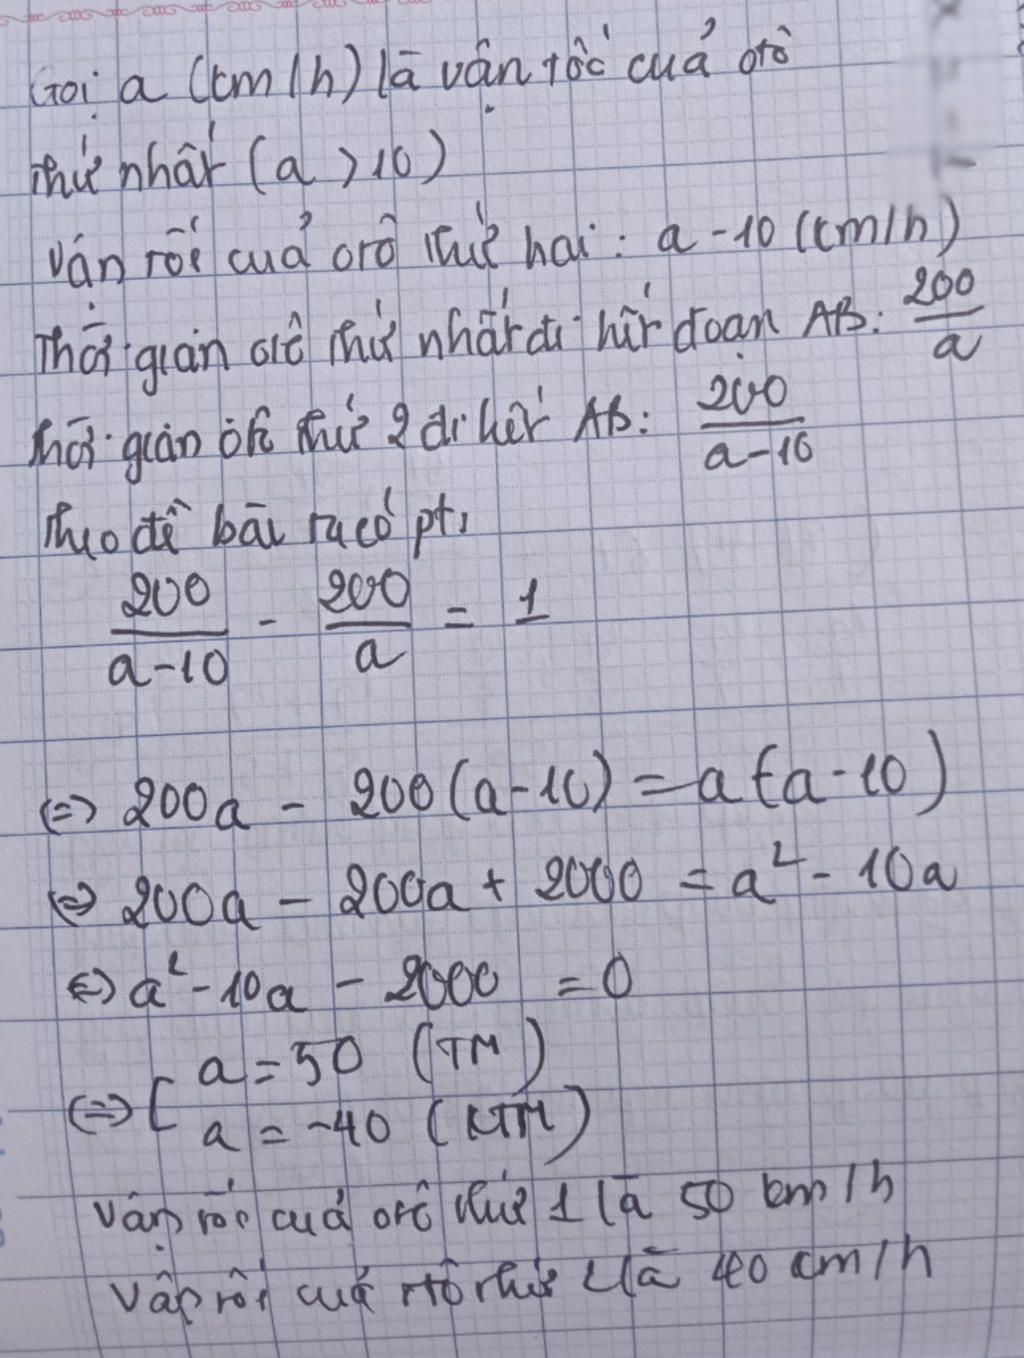 Gọi a (km/h) là vận tốc của ôtô
thứ nhất (a > 10)
Vận tốc của ôtô thứ hai: a - 10 (km/h)
Thời gian ôtô thứ nhất đi hết đoạn AB: 200/a
Thời gian ôtô thứ 2 đi hết AB: 200/(a-10)
Theo đề bài ra có pt:
200/(a-10) - 200/a = 1
<=> 200a - 200(a-10) = a(a-10)
<=> 200a - 200a + 2000 = a² - 10a
<=> a² - 10a - 2000 = 0
<=> [ a = 50 (TM)
a = -40 (KTM)
Vận tốc của ôtô thứ 1 là 50 km/h
Vận tốc của ôtô thứ 2 là 40 km/h